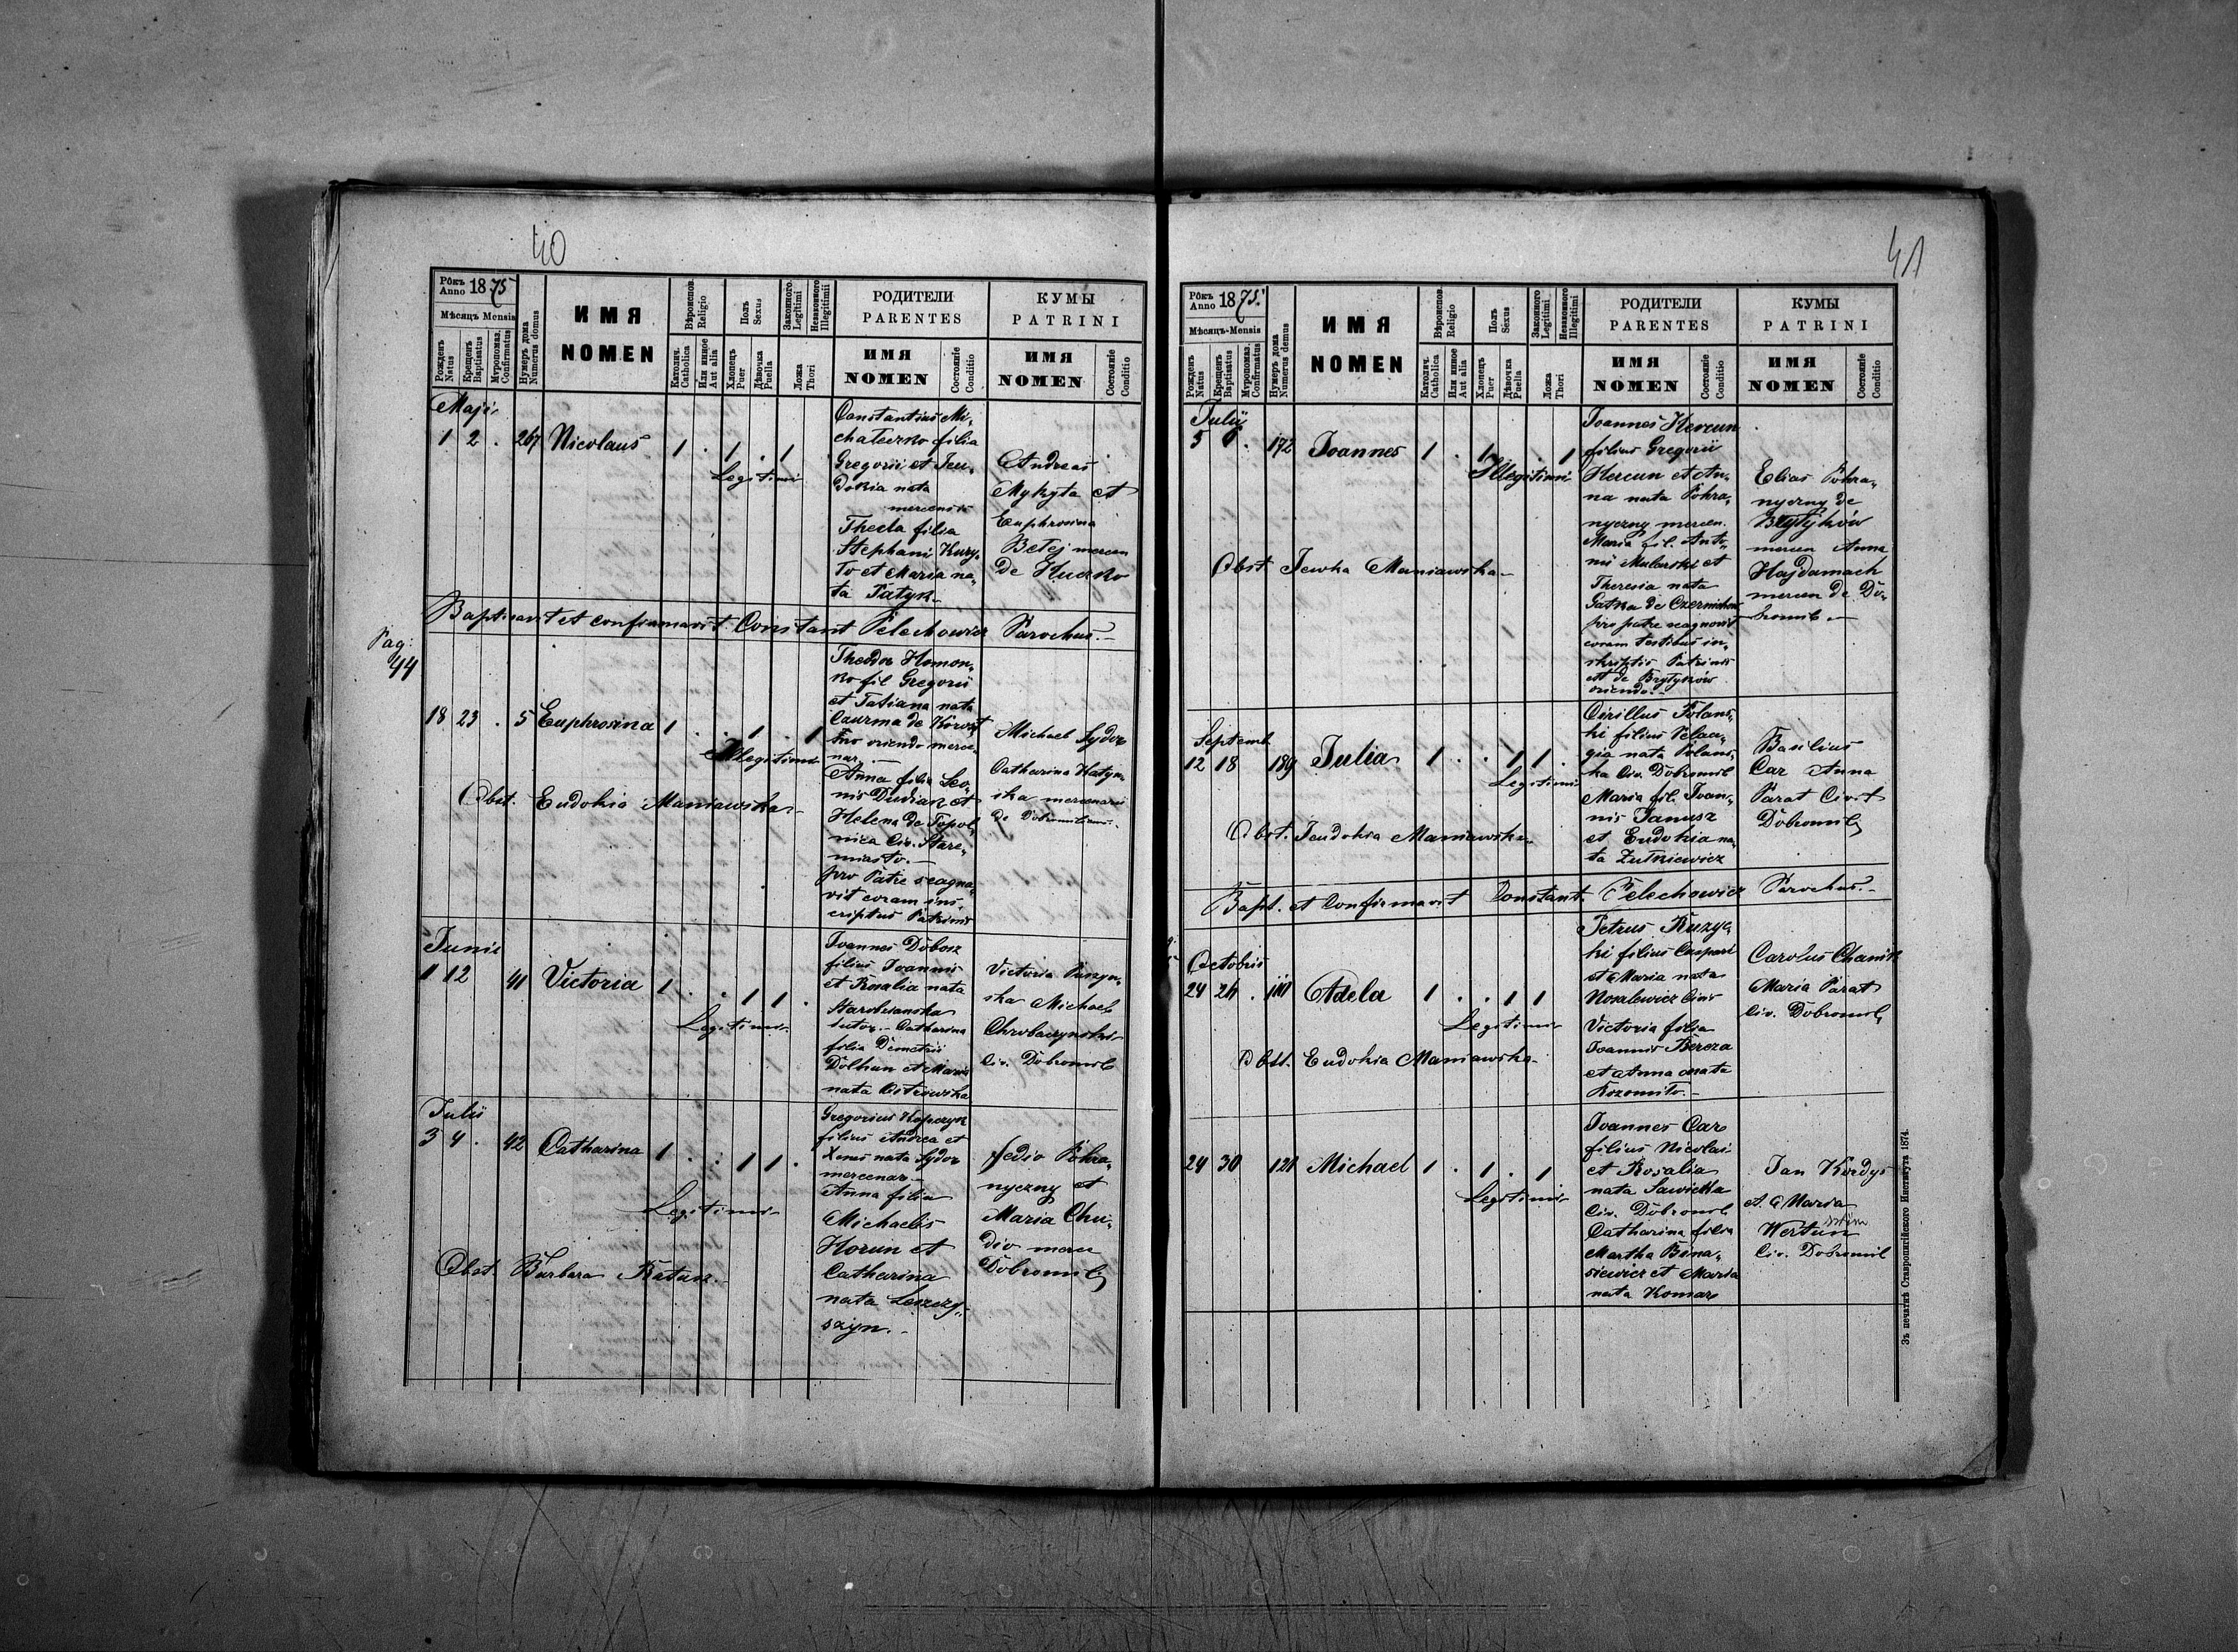 40
Рôкъ Anno 1875
Мѣсяцъ Mensis
Рожденъ Natus
Крещенъ Baptisatus
Мѵропомаз. Confirmatus
Нумеръ дома Numerus domus
ИМЯ
NOMEN
Вѣроисповѣд. Religio
Католич. Catholica
Или инное Aut alia
Полъ Sexus
Хлопецъ Puer
Дѣвочка Puella
Законного Legitimi
Незаконного Illegitimi
Ложа Thori
РОДИТЕЛИ
PARENTES
ИМЯ
NOMEN
Состояніе Conditio
КУМЫ
PATRINI
ИМЯ
NOMEN
Состояніе Conditio
Maji
1 2 . 267 Nicolaus 1 . 1 . 1
Legitimi
Constantius Mi-
chaleczko filia
Gregorii et Jeu-
dokia nata
mercenar
Thecla filia
Stephani Kury-
To et Maria na-
ta Patyk
Andreas
Mykyta et
Euphrosina
Betej mercen
de Huczko
Baptisavit et confirmavit Constant Pelechowicz Parochus.
Pag:
44
18 23 . 5 Euphrosina 1 . . 1 . 1
Illegitimi
Theodor Homon-
ko fil Gregorii
et Tatiana nata
Caurma de
oriendo merce-
nar.
Anna filia Leo-
nis Dudiak et
Helena de Topol-
nica Civ. Stare-
miasto.
pro Patre reagno-
vit coram ins-
criptus Patrinis
Michael Sydor
Catharina
ska mercenarii
de
Obst. Eudokia Maniawska
Junii
1 12 41 Victoria 1 . . 1 1 .
Legitimi
Joannes Dobosz
filius Joannis
et Rosalia nata
Starobranska
sutor. Catharina
filia Demetrii
Dolhun et Maria
nata Ostrowska
Victoria
ska Michael
Chrobaczynski
Civ. Dobromil
Julii
3 4 . 42 Catharina 1 . . 1 1 .
Legitimi
Gregorius Kopczyk
filius Andrea et
Xenia nata Sydor
mercenar.
Anna filia
Michaelis
Horun et
Catharina
nata Leszczy-
szyn.
Fedio Pohra-
nyczny et
Maria Chu-
dio merce
Dobromil
Obst. Barbara Ratusz.
41
Рôкъ Anno 1875.
Мѣсяцъ-Mensis
Рожденъ Natus
Крещенъ Baptisatus
Мѵропомаз. Confirmatus
Нумеръ дома Numerus domus
ИМЯ
NOMEN
Вѣроисповѣд. Religio
Католич. Catholica
Или инное Aut alia
Полъ Sexus
Хлопецъ Puer
Дѣвочка Puella
Законного Legitimi
Незаконного Illegitimi
Ложа Thori
РОДИТЕЛИ
PARENTES
ИМЯ
NOMEN
Состояніе Conditio
КУМЫ
PATRINI
ИМЯ
NOMEN
Состояніе Conditio
Julii
5 6 . 172 Joannes 1 . 1 . . 1
Illegitimi
Joannes Hercun
filius Gregorii
Hercun et An-
na nata Pohra-
nyczny mercen.
Maria fil. Anto-
nii Mularski et
Theresia nata
Gatka de Czernichow
pro patre reagnovit
coram testibus in-
skriptis Patrinis
et de Brylyków
oriendo.
Elias Pohra-
nyczny de
Brylyków
mercen Anna
Hajdamach
mercen de Do-
bromil
Obst Jewka Maniawska
Septemb
12 18 189 Julia 1 . . 1 1 .
Legitimi
Cirillus Polans-
ki filius Pelea-
gia nata Polans-
ka Civ. Dobromil
Maria fil. Joan-
nis Janusz
et Eudokia na-
ta Zutkiewicz
Basilius
Car Anna
Parat Civit
Dobromil
Obst. Jeudokia Maniawska
Bapt. et Confirmavit Constant. Pelechowicz Parochus.
Octobris
24 26 . 110 Adela 1 . . 1 1
Legitimi
Petrus Kuzyc-
ki filius Caspari
et Maria nata
Nosalewicz Civis
Victoria filia
Joannis Bereza
et Anna nata
Rozomito.
Carolus Chanik
Maria Parat
Civ. Dobromil
Obst. Eudokia Maniawska
24 30 121 Michael 1 . 1 . 1
Legitimi
Joannes Car
filius Nicolai
et Rosalia
nata Sawicka
Civ. Dobromil
Catharina filia
Martha Bana-
siewicz et Maria
nata Komar
Jan Kordys
et Maria
Wertun
Civ. Dobromil
Зъ печатнѣ Ставропигійского Института 1874.